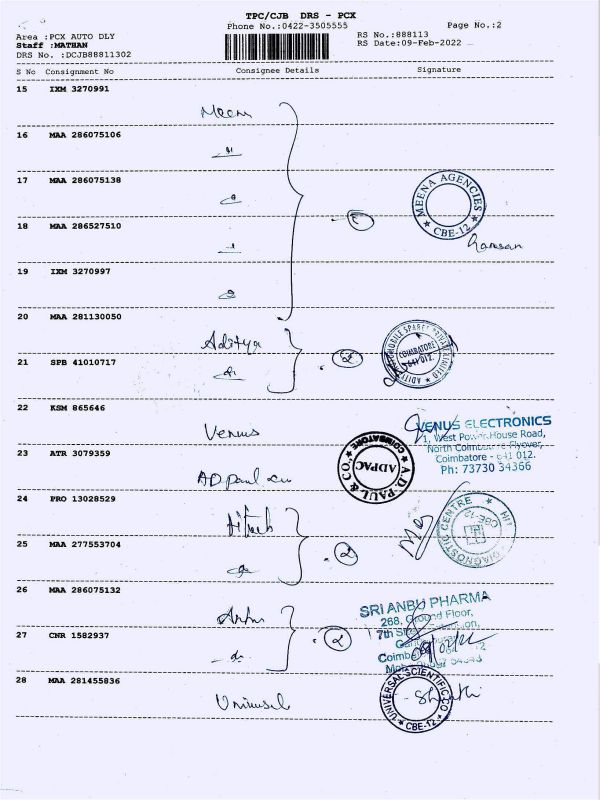 TPC/CJB DRS - PCX
Phone No.:0422-3505555
Page No.:2
Area :PCX AUTO DLY
RS No.:888113
Staff :MATHAN
RS Date:09-Feb-2022
DRS No. :DCJB88811302
S No Consignment No Consignee Details Signature
15 IXM 3270991
Meena
16 MAA 286075106
17 MAA 286075138
MEENA AGENCIES
CBE-12
18 MAA 286527510
19 IXM 3270997
20 MAA 281130050
Aditya
COIMBATORE
641 012
21 SPB 41010717
2
22 KSM 865646
Venus
VENUS ELECTRONICS
1, West Power House Road,
North Coimbatore Flyover,
Coimbatore - 641 012.
Ph: 73730 34366
23 ATR 3079359
AD paul
A.D. PAUL & CO.,
COIMBATORE
ADPAC
24 PRO 13028529
HI
DIAGNOSTIC CENTRE
CBE-12
25 MAA 277553704
2
26 MAA 286075132
SRI ANBU PHARMA
268, Ground Floor,
27 CNR 1582937
2
28 MAA 281455836
UNIVERSAL SCIENTIFIC CO
CBE-12